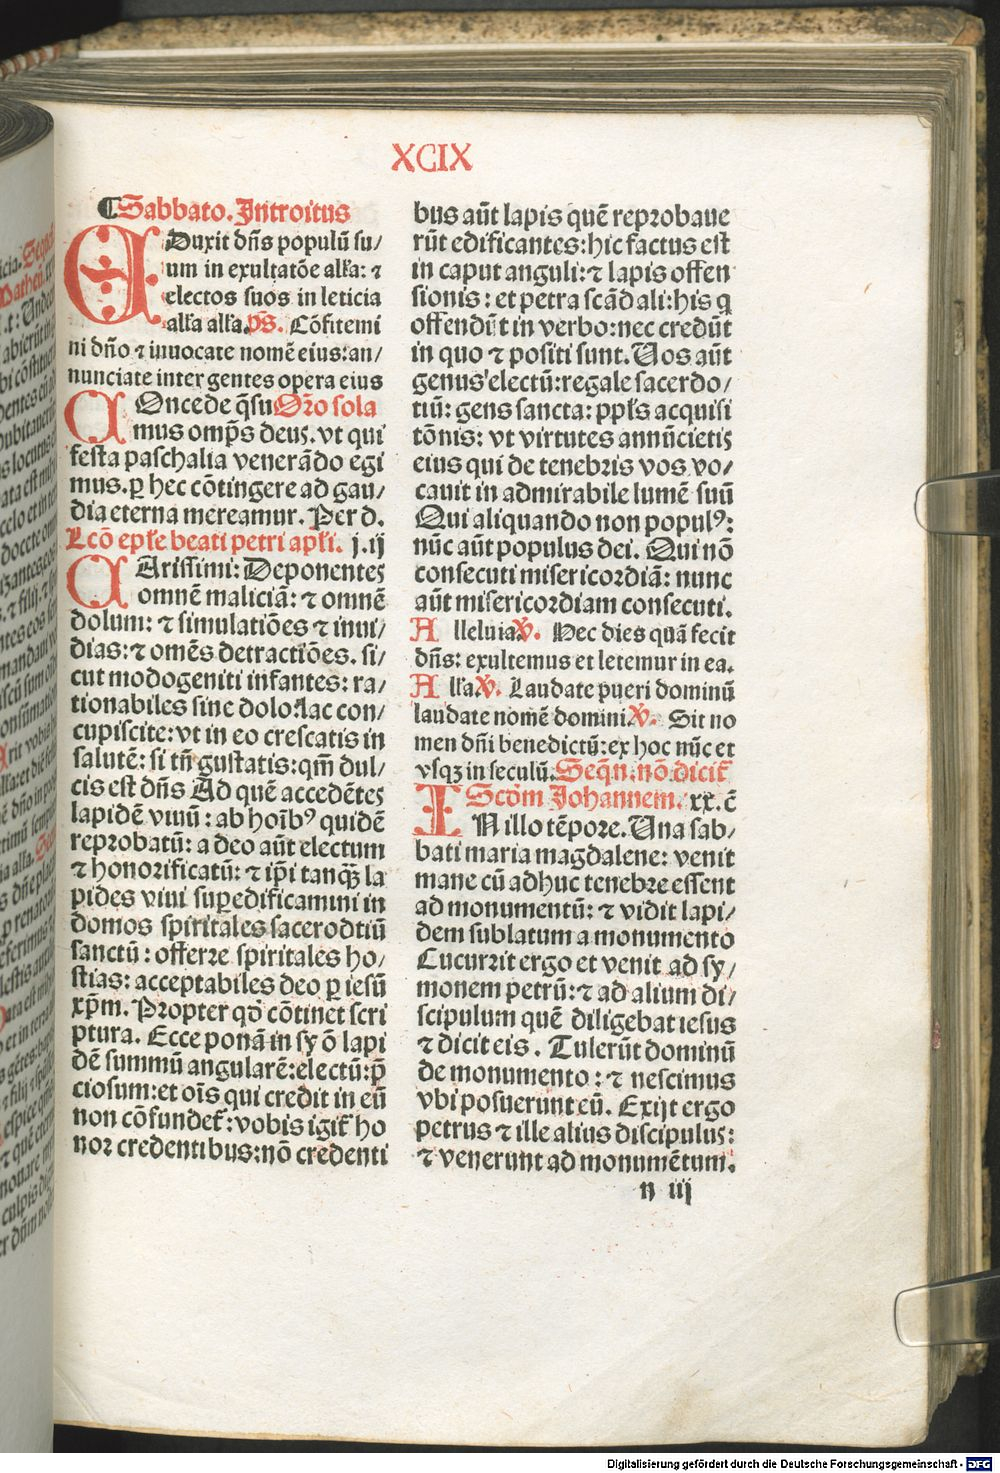 XCIX
Sabbato. Introitus
EDuxit dñs populũ su/
um in exultatõe alĺa: ⁊
electos suos in leticia
alĺa alĺa. pš. Cõfitemi
ni dño ⁊ inuocate nomẽ eius: an/
nunciate inter gentes opera eius
COncede q̃su Orõ sola
mus omp̃s deus. vt qui
festa paschalia venerãdo egi
mus. ꝑ hec cõtingere ad gau/
dia eterna mereamur. Per d.
Lcõ epĺe beati petri apĺi. j. ij
CArissimi: Deponentes
omnẽ maliciã: ⁊ omnẽ
dolum: ⁊ simulatiões ⁊ inui/
dias: ⁊ omẽs detractiões. si/
cut modogeniti infantes: ra/
tionabiles sine dolo: lac con/
cupiscite: vt in eo crescatis in
salutẽ: si tñ gustatis: qm̃ dul/
cis est dñs Ad quẽ accedẽtes
lapidẽ viuũ: ab hoĩbꝰ quidẽ
reprobatũ: a deo aũt electum
⁊ honorificatũ: ⁊ ip̃i tanq̃ la
pides viui suꝑedificamini in
domos spiritales sacerodtiũ
sanctũ: offerre spiritales ho/
stias: acceptabiles deo ꝑ iesũ
xp̃m. Propter qd̾ cõtinet scri
ptura. Ecce ponã in syõ lapi
dẽ summũ angularẽ: electũ: p̃
ciosum: et oĩs qui credit in eũ
non cõfundet̃: vobis igit̃ ho
nor credentibus: nõ credenti
bus aũt lapis quẽ reprobaue
rũt edificantes: hic factus est
in caput anguli: ⁊ lapis offen
sionis: et petra scãdali: his q
offendũt in verbo: nec credũt
in quo ⁊ positi sunt. Uos aũt
genus electũ: regale sacerdo/
tiũ: gens sancta: ppĺs acquisi
tõnis: vt virtutes annũcietis
eius qui de tenebris vos vo/
cauit in admirabile lumẽ suũ
Qui aliquando non populꝰ:
nũc aũt populus dei. Qui nõ
consecuti misericordiã: nunc
aũt misericordiam consecuti.
Alleluia ꝟ. Hec dies quã fecit
dñs: exultemus et letemur in ea.
Alĺa ꝟ. Laudate pueri dominũ
laudate nomẽ domini ꝟ. Sit no
men dñi benedictũ: ex hoc nũc et
vsqꝫ in seculũ. Seq̃n. nõ dicit̃
Scdm Johannem. xx. c̃
IN illo tẽpore. Una sab/
bati maria magdalene: venit
mane cũ adhuc tenebre essent
ad monumentũ: ⁊ vidit lapi/
dem sublatum a monumento
Cucurrit ergo et venit ad sy/
monem petrũ: ⁊ ad alium di/
scipulum quẽ diligebat iesus
⁊ dicit eis. Tulerũt dominũ
de monumento: ⁊ nescimus
vbi posuerunt eũ. Exijt ergo
petrus ⁊ ille alius discipulus:
⁊ venerunt ad monumẽtum.
n iij
Digitalisierung gefördert durch die Deutsche Forschungsgemeinschaft - DFG